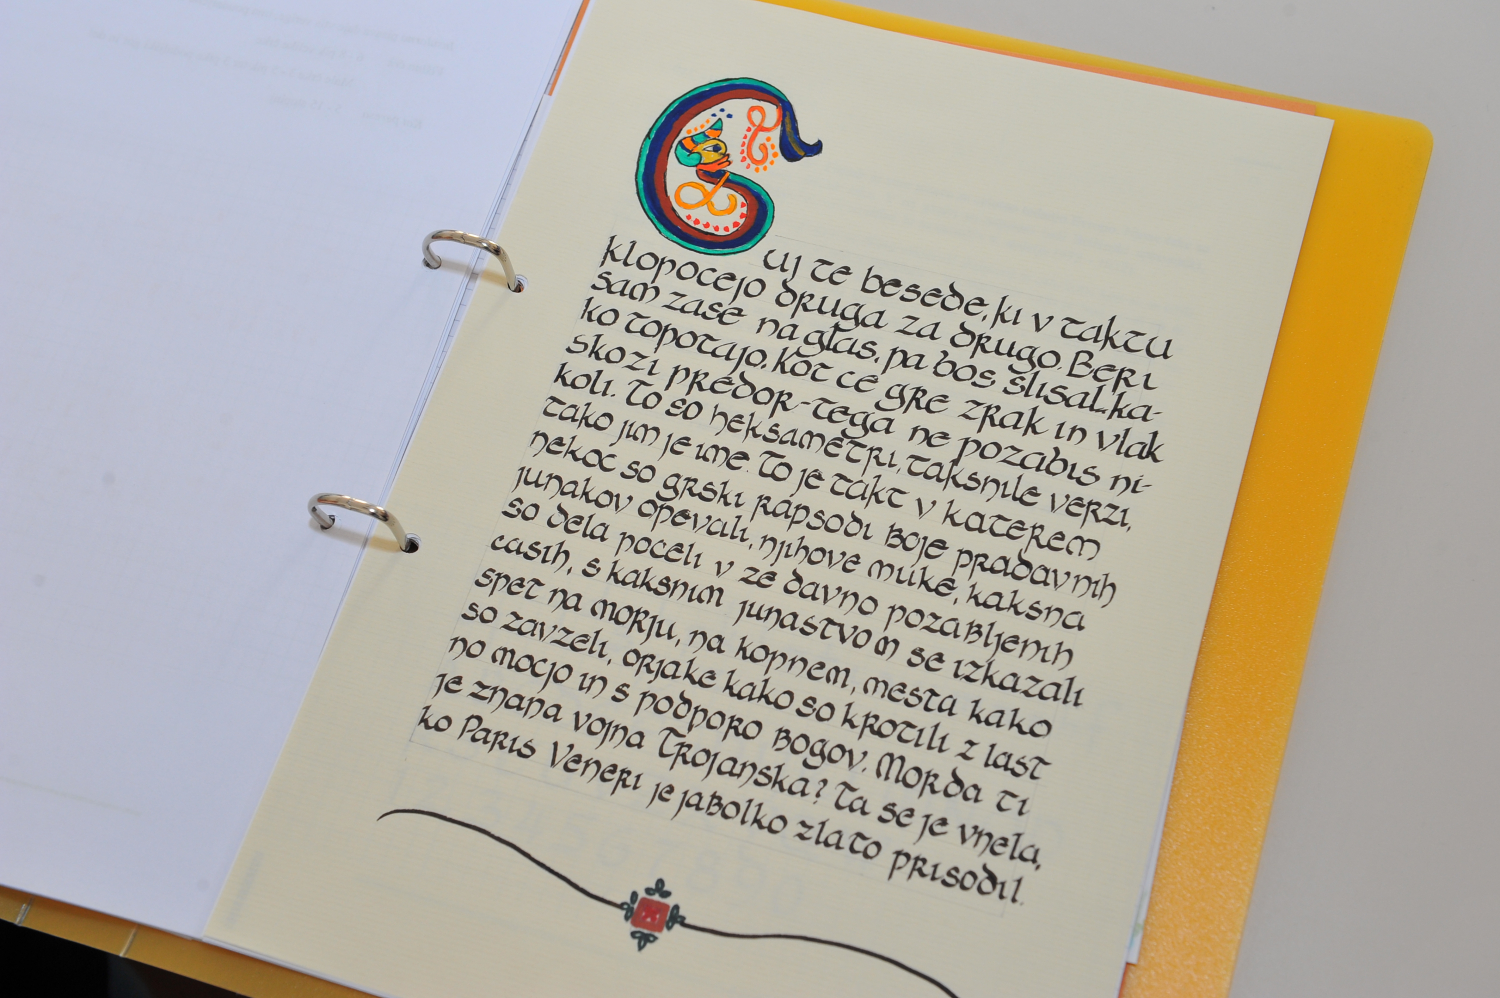 Cuj te besede, ki v taktu
klopocejo druga za drugo. Beri
sam zase na glas, pa bos slisal, ka-
ko topotajo. Kot ce gre zrak in vlak
skozi predor - tega ne pozabis ni-
koli. To so heksametri, taksnile verzi,
tako jim je ime. To je takt v katerem
nekoc so grski rapsodi boje pradavnih
junakov opevali, njihove muke, kaksna
so dela poceli v ze davno pozabljenih
casih, s kaksnim junastvom se izkazali
spet na morju, na kopnem, mesta kako
so zavzeli, orjake kako so krotili z last
no mocjo in s podporo bogov. Morda ti
je znana vojna Trojanska? Ta se je vnela,
ko Paris Veneri je jabolko zlato prisodil.